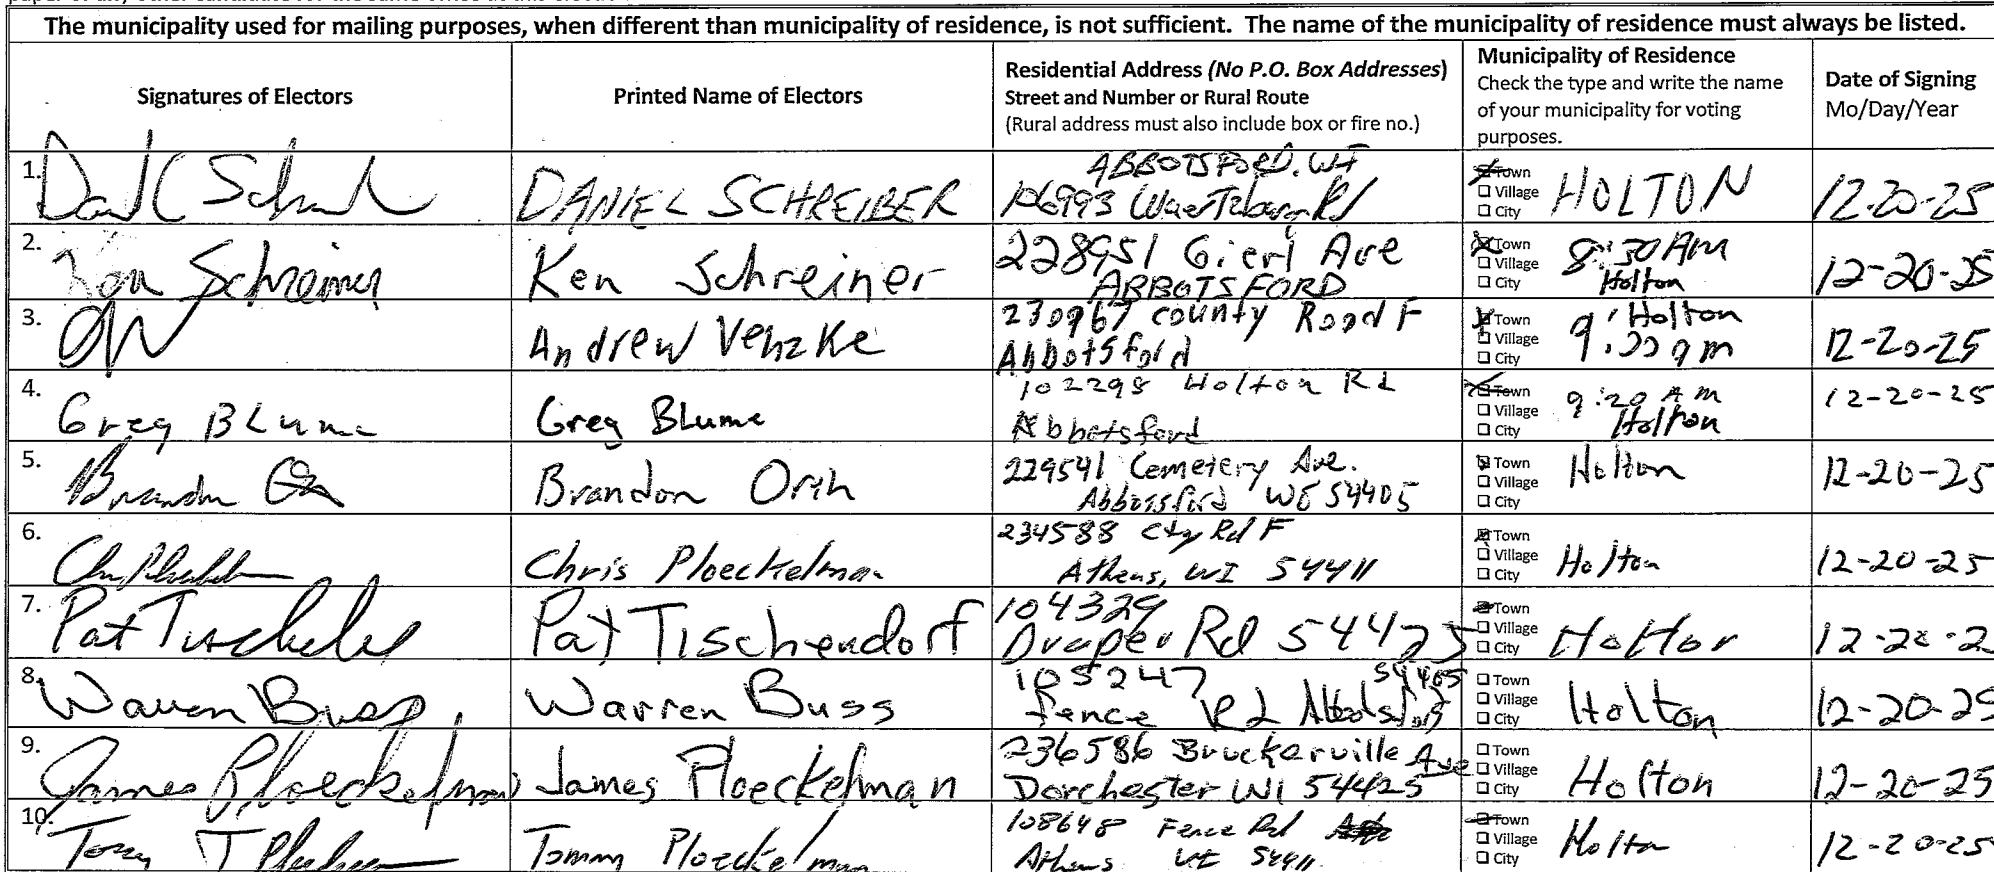 The municipality used for mailing purposes, when different than municipality of residence, is not sufficient. The name of the municipality of residence must always be listed.
Signatures of Electors
Printed Name of Electors
Residential Address (No P.O. Box Addresses)
Street and Number or Rural Route
(Rural address must also include box or fire no.)
Municipality of Residence
Check the type and write the name
of your municipality for voting
purposes.
Date of Signing
Mo/Day/Year
1.
DANIEL SCHREIBER
ABBOTSFORD, WI
106993 Rd
Town
Village
City
HOLTON
12-20-25
2.
Ken Schreiner
Ken Schreiner
228951 Gierl Ave
ABBOTSFORD
Town
Village
City
8:30 AM
Holton
12-20-25
3.
Andrew Venzke
230967 county Road F
Abbotsford
Town
Village
City
Holton
9:00 am
12-20-25
4.
Greg Blume
Greg Blume
102298 Holton Rd
Abbotsford
Town
Village
City
9:20 AM
Holton
12-20-25
5.
Brandon
Brandon Orth
229541 Cemetery Ave.
Abbotsford WI 54405
Town
Village
City
Holton
12-20-25
6.
Chris Ploeckelman
234588 Cty Rd F
Athens, WI 54411
Town
Village
City
Holton
12-20-25
7.
Pat
Pat Tischendorf
104329
Draper Rd 54425
Town
Village
City
Holton
12-20-2
8.
Warren Buss
Warren Buss
105247 54405
fence Rd Abbotsford
Town
Village
City
Holton
12-20-25
9.
James Ploeckelman
James Ploeckelman
236586 Bruckerville Ave
Dorchester WI 54425
Town
Village
City
Holton
12-20-25
10.
Tommy Ploeckelman
108648 Fence Rd
Athens WI 54411
Town
Village
City
Holton
12-20-25